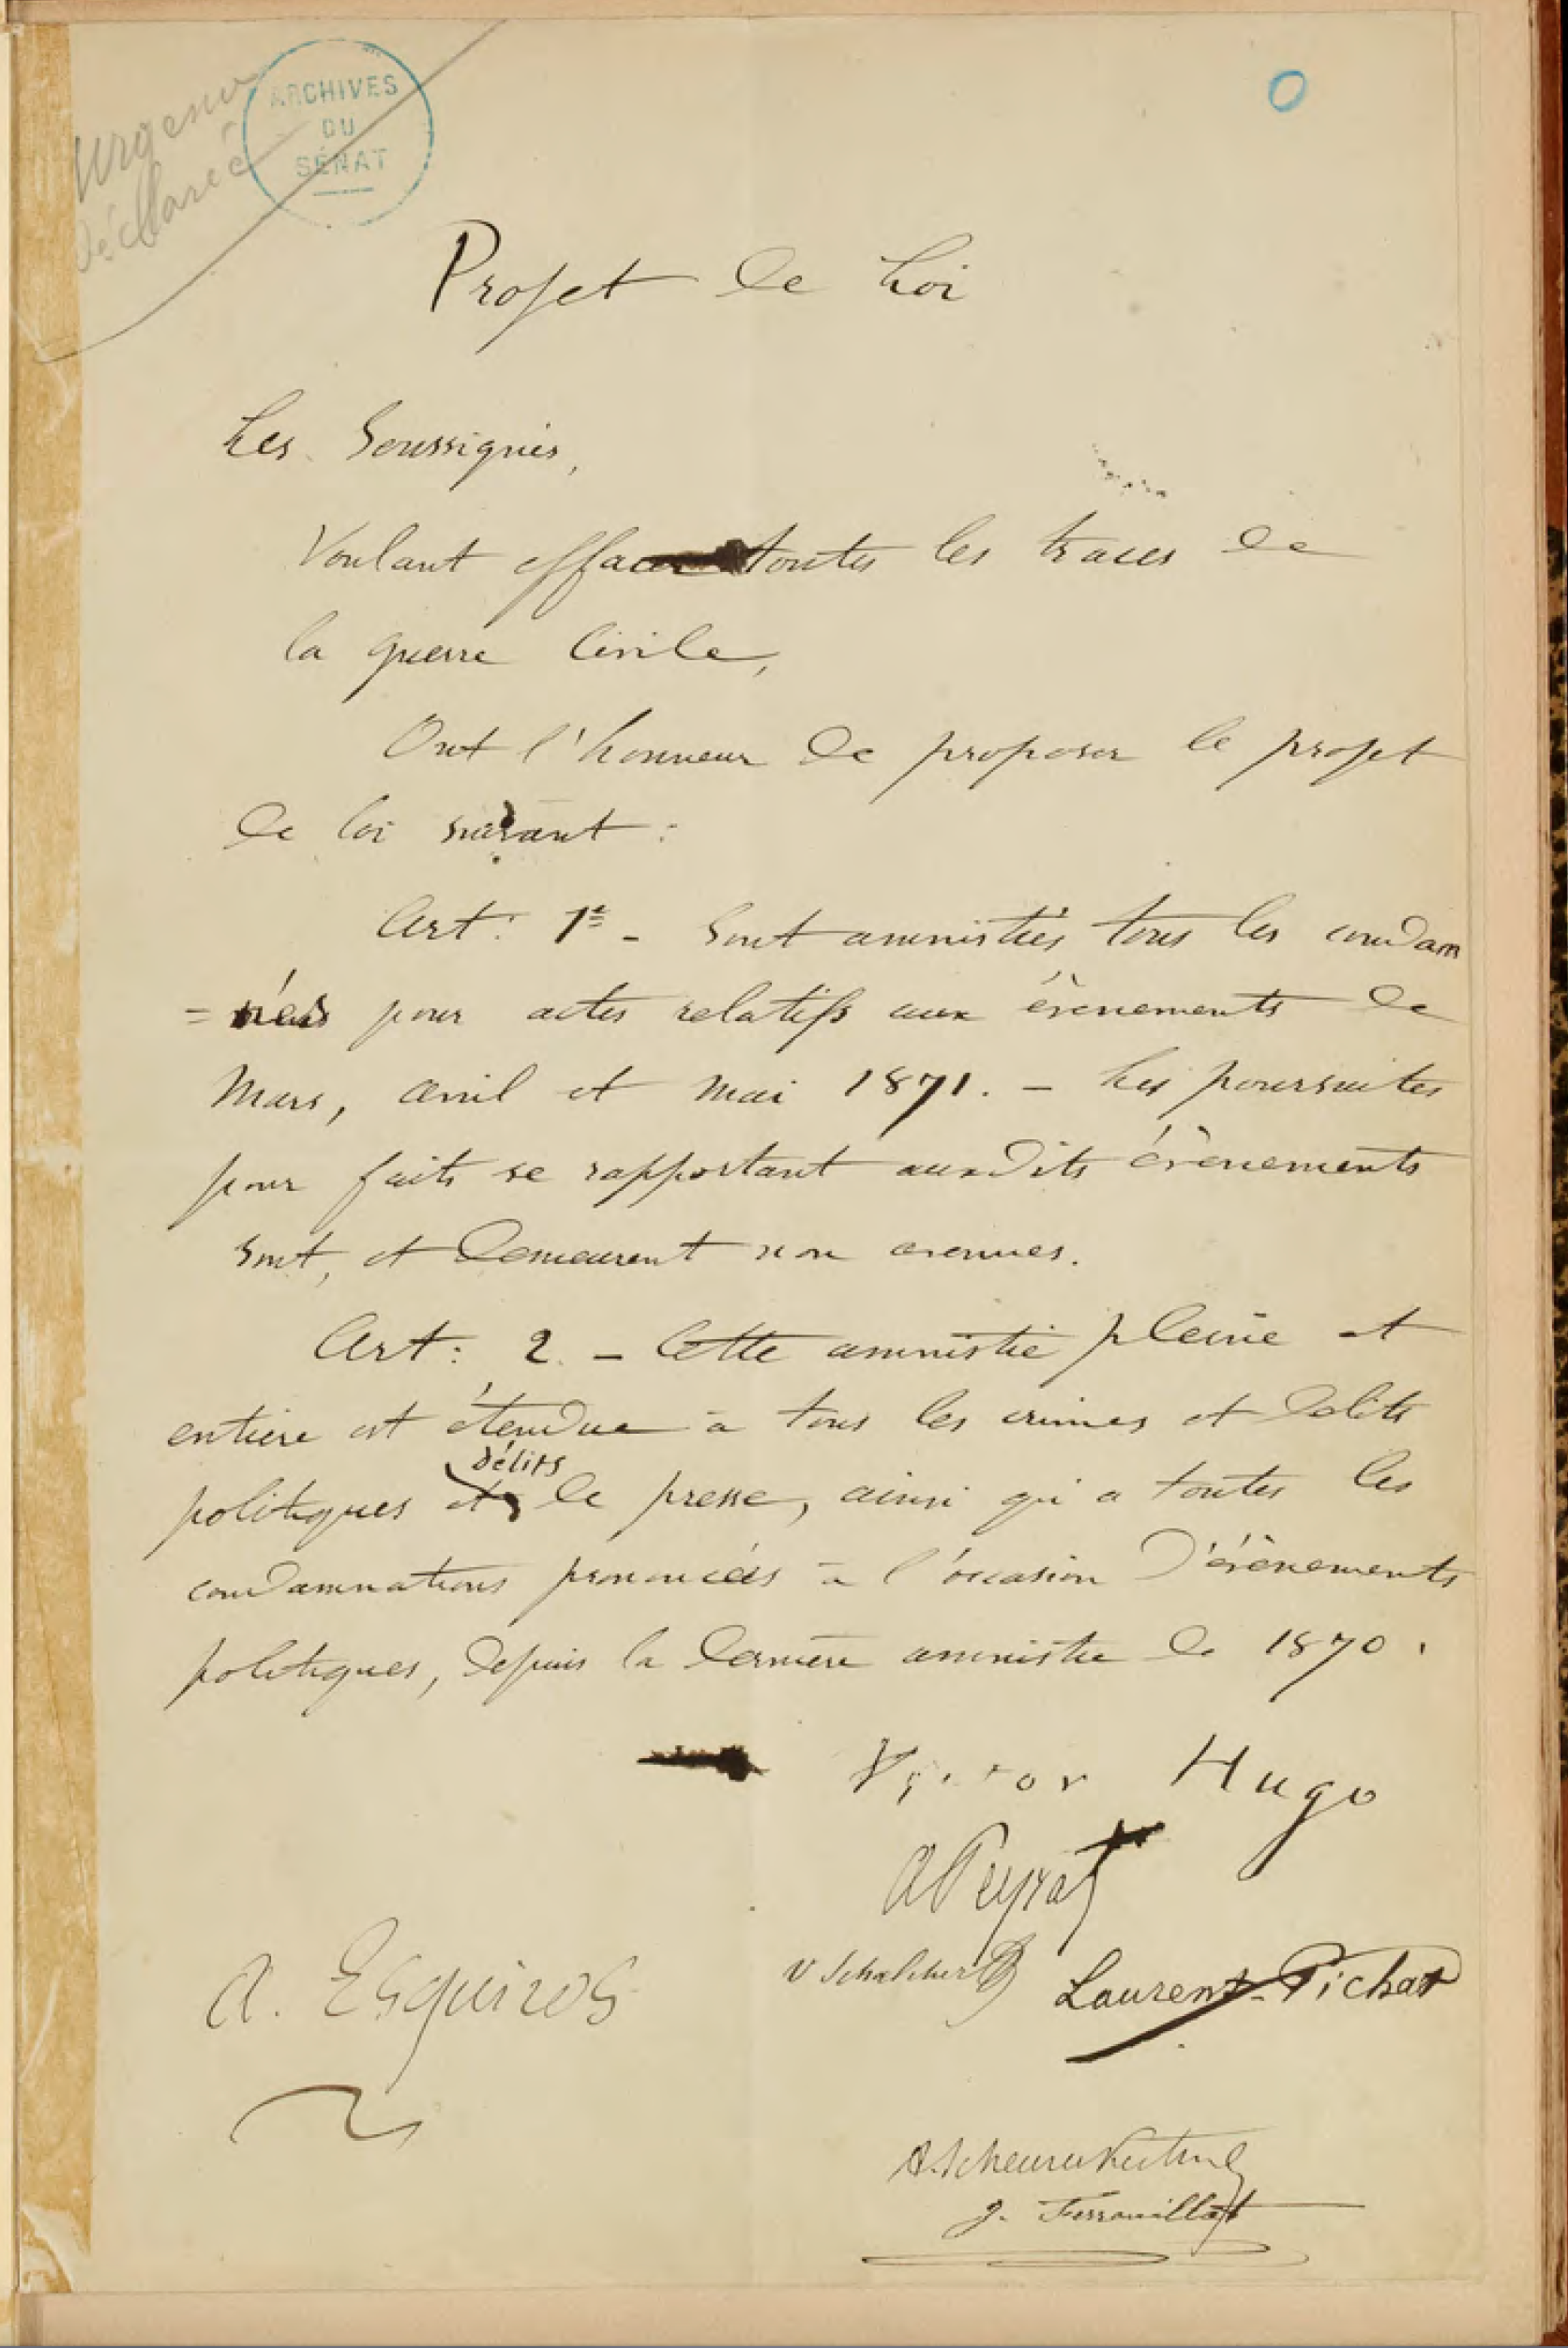 Urgence
déclarée
ARCHIVES
DU
SÉNAT
Projet de Loi
Les Soussignés,
Voulant effacer toutes les traces de
la guerre civile,
Ont l'honneur de proposer le projet
de loi suivant :
Art: 1er - Sont amnistiés tous les condam
= nés pour actes relatifs aux évènements de
Mars, avril et Mai 1871. - Les poursuites
pour faits se rapportant auxdits évènements
sont, et demeurent non avenues.
Art: 2. - Cette amnistie pleine et
entière est étendue à tous les crimes et délits
délits
politiques et de presse, ainsi qu'a toutes les
condamnations prononcées à l'occasion d'évènements
politiques, depuis la dernière amnistie de 1870.
Victor Hugo
A Peyrat
V Schœlcher
Laurent-Pichat
A. Esquiros
A. Scheurer Kestner
J. Ferrouillat